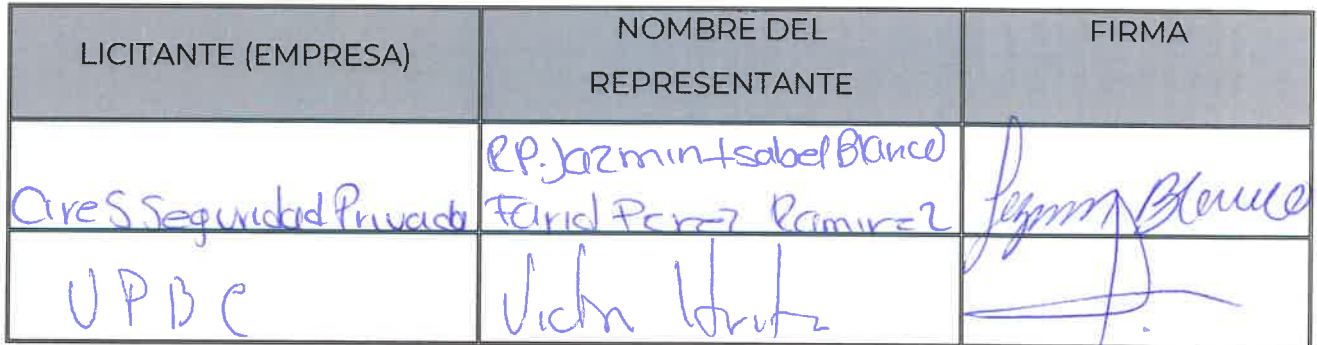 LICITANTE (EMPRESA)
NOMBRE DEL
REPRESENTANTE
FIRMA
Ares Seguridad Privada
RP. Jazmin Isabel Blanco
Farid Perez Ramirez
Blanco
UPBC
Victor